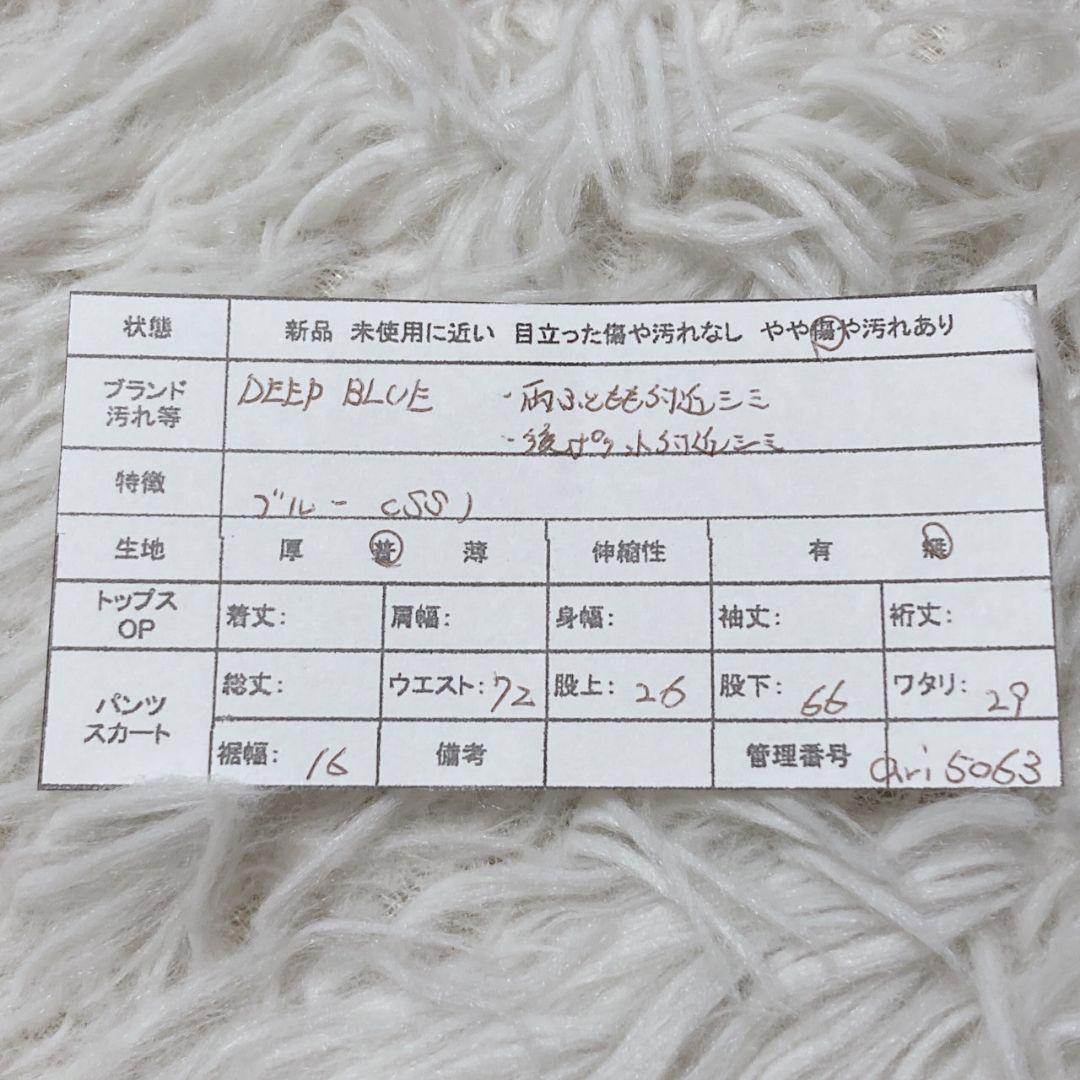 状態 新品 未使用に近い 目立った傷や汚れなし やや傷や汚れあり
ブランド DEEP BLUE ・両ふともも付近シミ
汚れ等 ・後ポケット付近シミ
特徴 ブルー (SS)
生地 厚 普 薄 伸縮性 有 無
トップス
OP 着丈: 肩幅: 身幅: 袖丈: 裄丈:
パンツ
スカート 総丈: ウエスト: 72 股上: 26 股下: 66 ワタリ: 29
裾幅: 16 備考 管理番号 ari5063